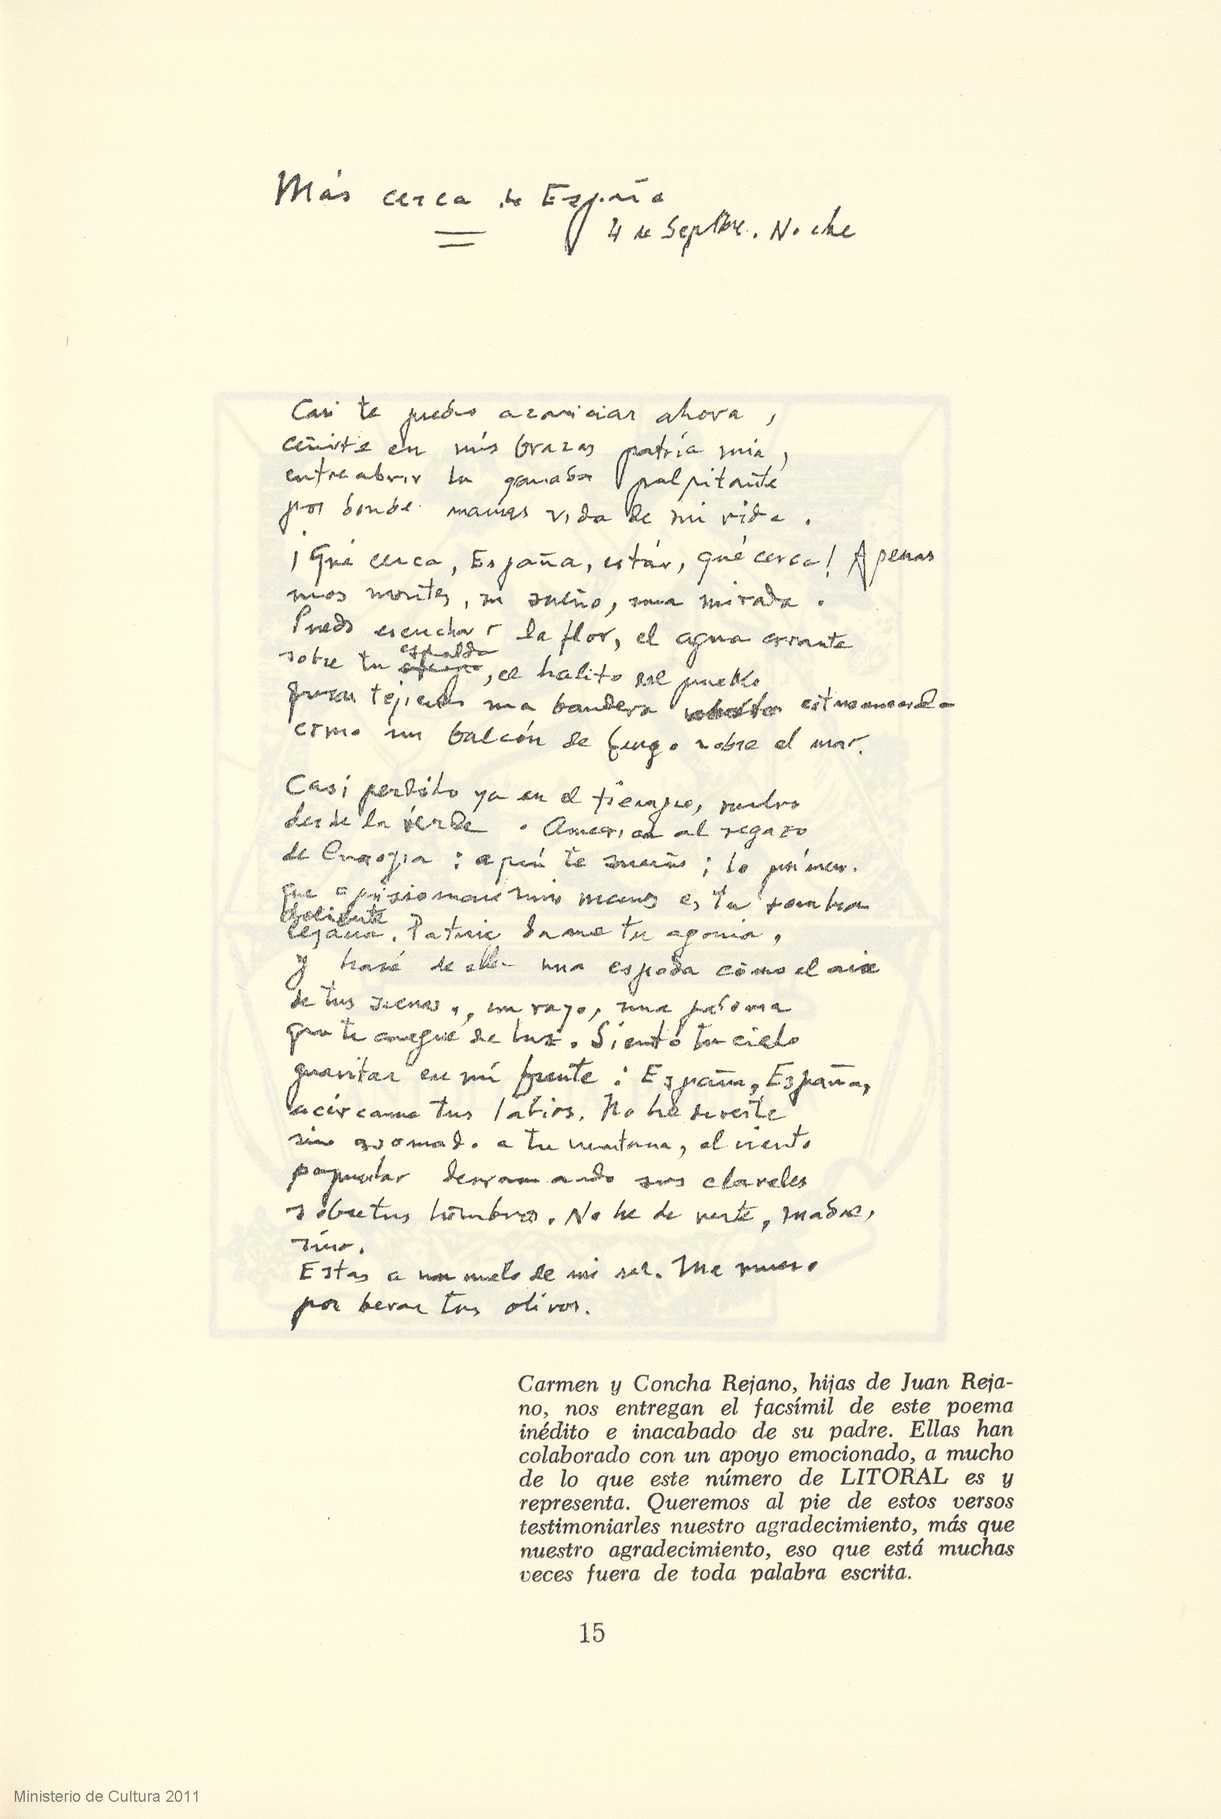 Más cerca de España
4 de Septbre. Noche
Casi te puedo acariciar ahora,
ceñirte en mis brazos patria mía,
entreabrir la granada palpitante
por donde manas vida de mi vida.
¡Qué cerca, España, estás, qué cerca! Apenas
unos montes, un sueño, una mirada.
Puedo escuchar la flor, el agua errante
sobre tu espalda, el hálito del pueblo
tejiendo una bandera estremecida
como un balcón de fuego sobre el mar.
Casi perdido ya en el tiempo, vuelvo
desde la verde America al regazo
de Europa: aquí te sueño; lo primero
que aprisionan mis manos es tu sombra
doliente
lejana. Patria dame tu agonía,
y haré de ella una espada como el aire
de tus sienes, un rayo, una paloma
que te anegue de luz. Siento tu cielo
gravitar en mi frente: España, España,
acércame tus labios. No he de verte
sino asomado a tu ventana, al viento
popular derramando sus claveles
sobre tus hombros. No he de verte, madre,
sino.
Estas a un vuelo de mi ser. Me muero
por besar tus olivos.
Carmen y Concha Rejano, hijas de Juan Reja-
no, nos entregan el facsímil de este poema
inédito e inacabado de su padre. Ellas han
colaborado con un apoyo emocionado, a mucho
de lo que este número de LITORAL es y
representa. Queremos al pie de estos versos
testimoniarles nuestro agradecimiento, más que
nuestro agradecimiento, eso que está muchas
veces fuera de toda palabra escrita.
15
Ministerio de Cultura 2011